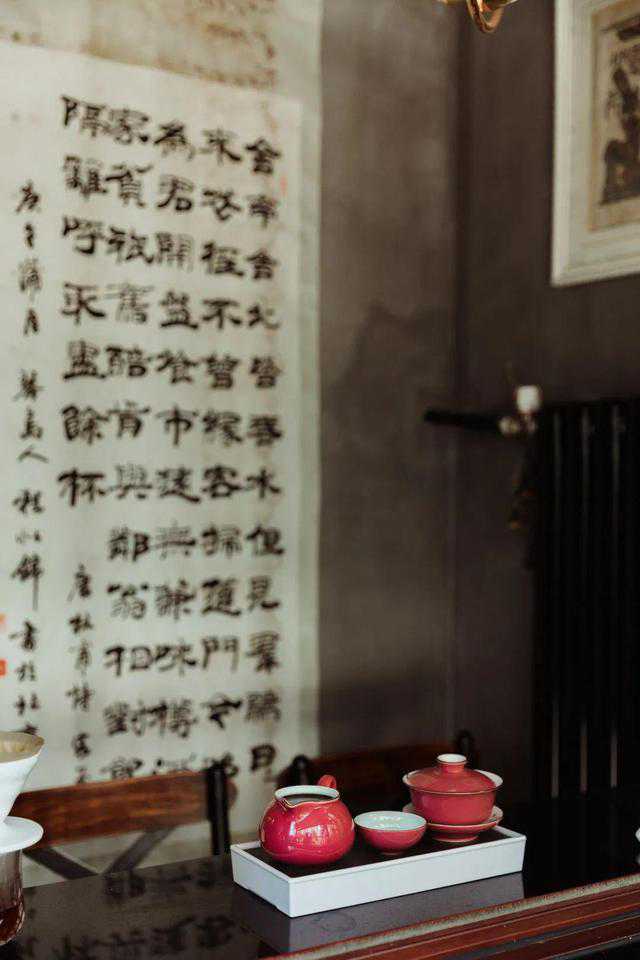 舍南舍北皆春水但見羣鷗日
來花徑不曾緣客掃蓬門今始
為君開盤飧市遠無兼味樽酒
家貧祇舊醅肯與鄰翁相對飲
隔籬呼取盡餘杯
唐杜甫詩客至
庚子蒲月 人 錦書於杜